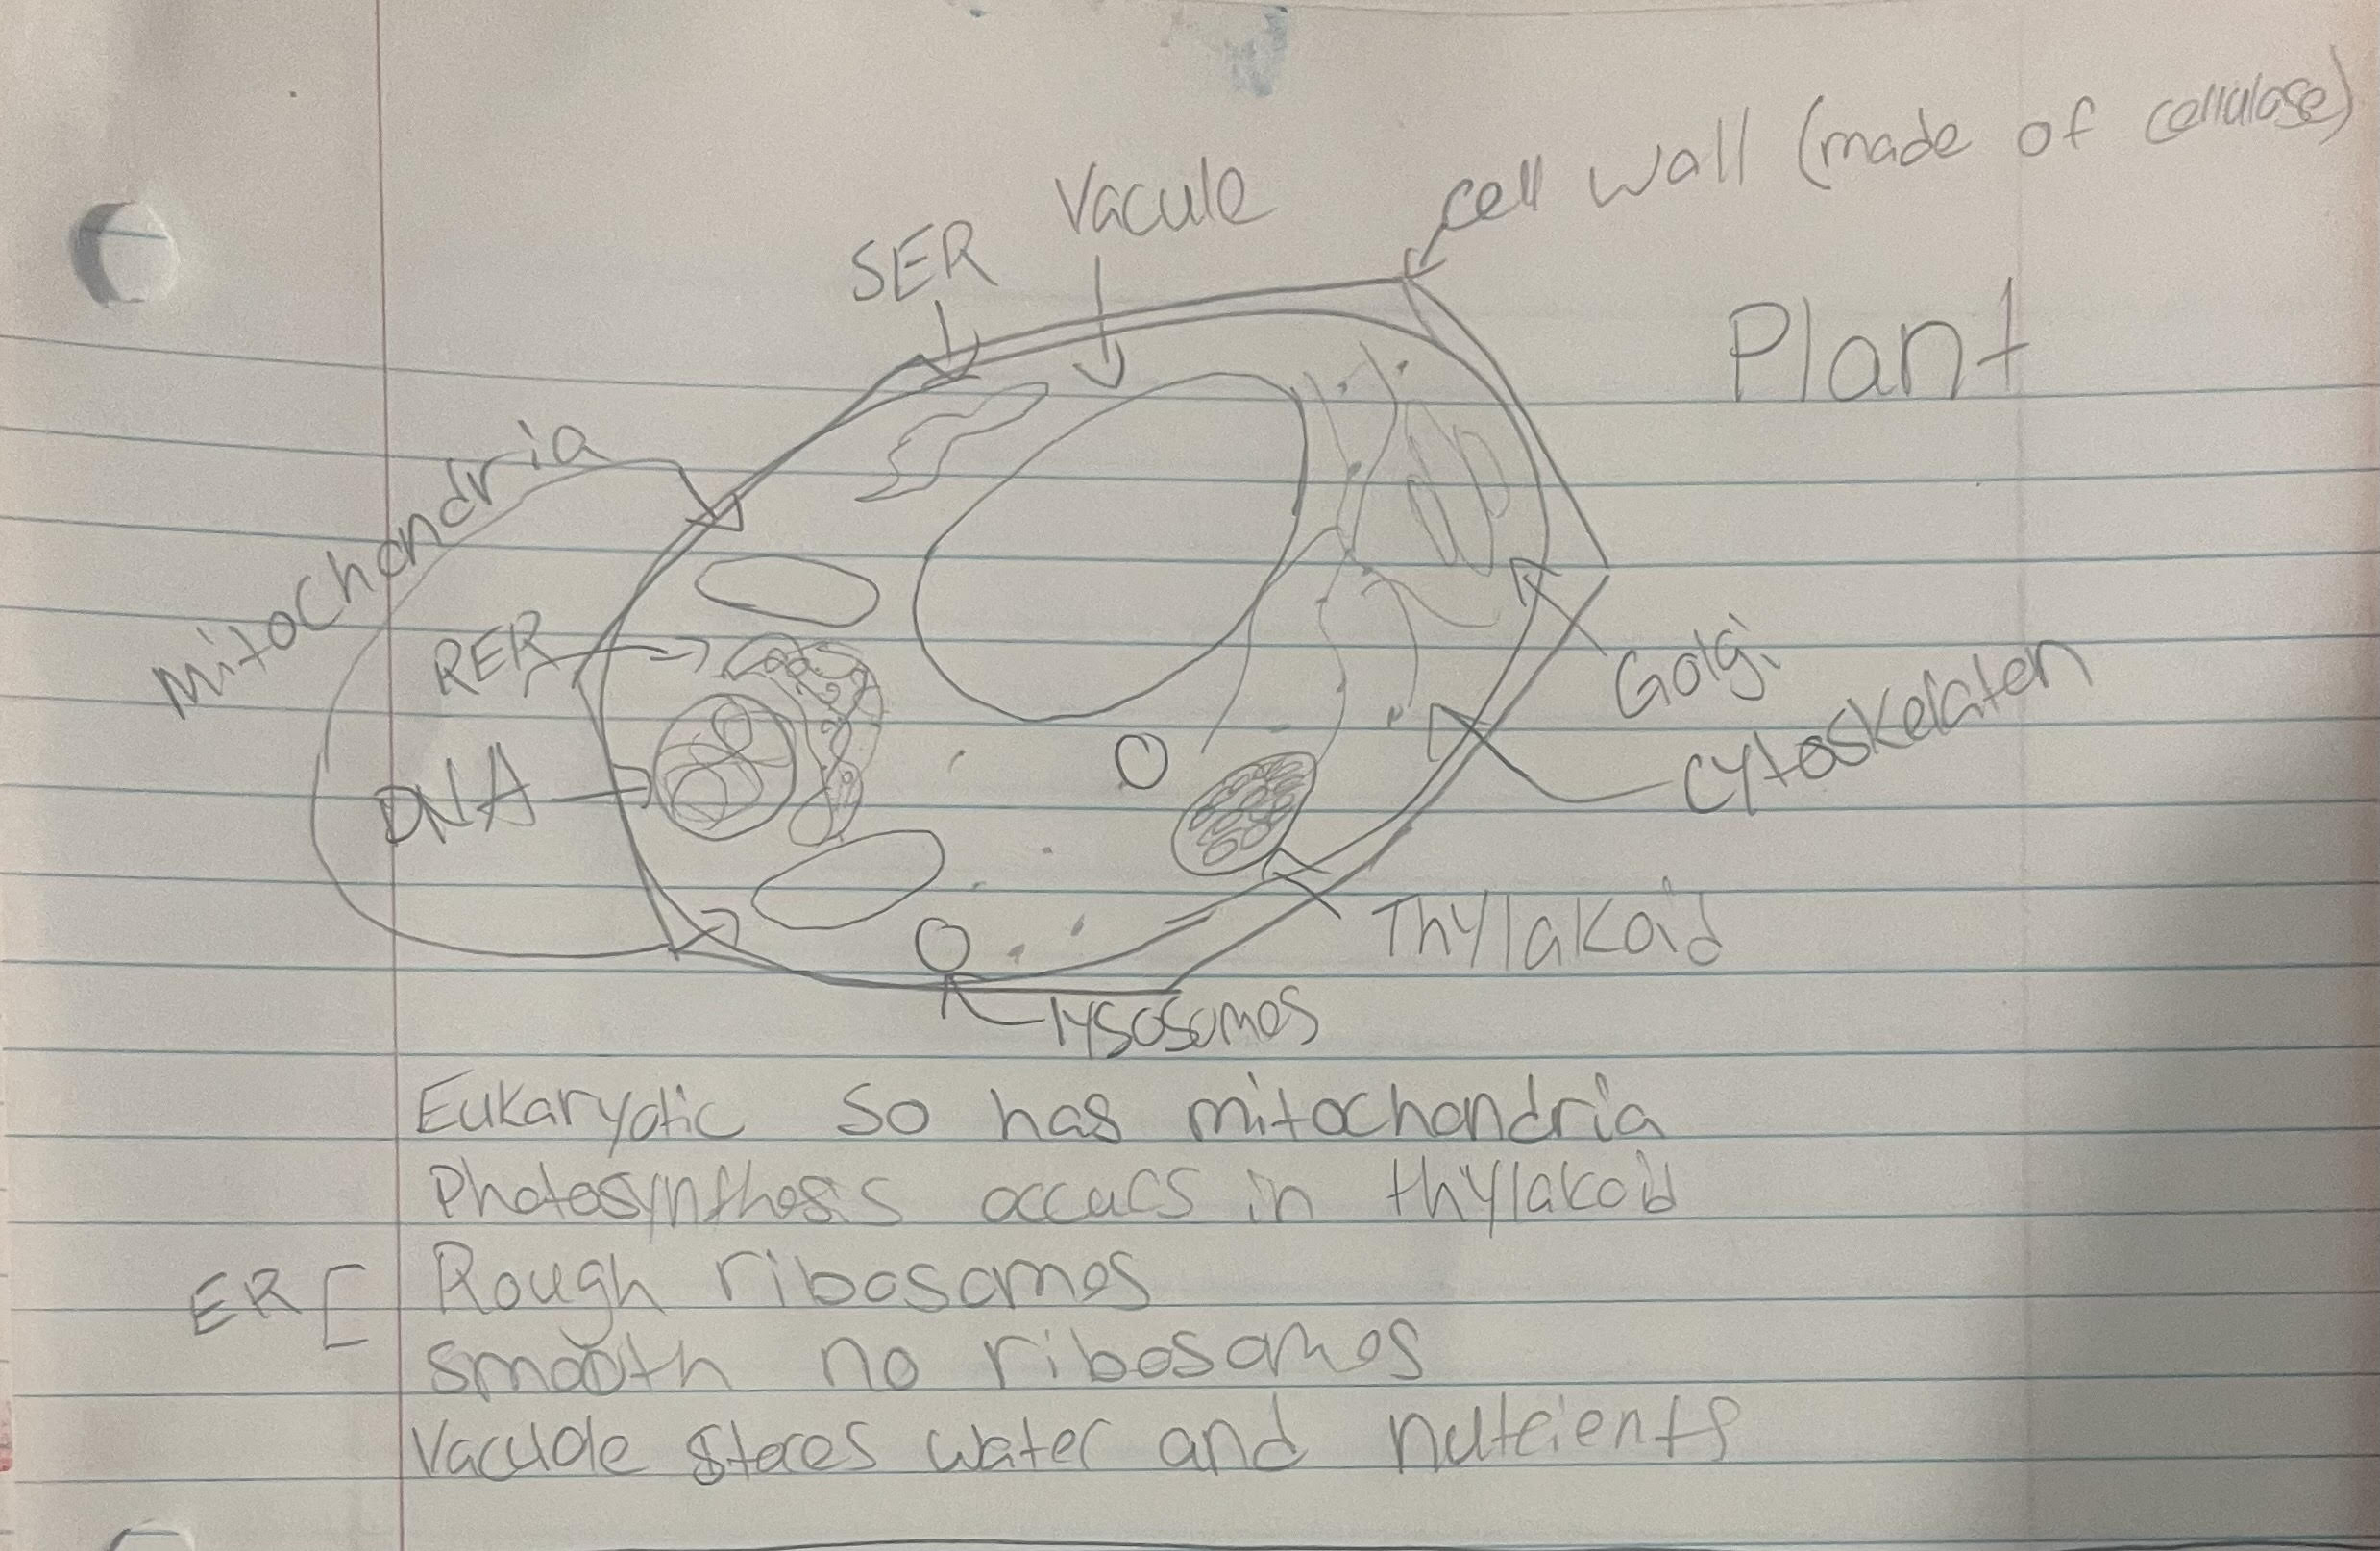 cell wall (made of cellulose)
Vacule
SER
Plant
Mitochondria
RER
Golgi
Cytoskelaten
DNA
Thylakoid
lysosomes
Eukaryotic so has mitochondria
Photosynthesis occurs in thylakoid
ER [ Rough ribosomes
smooth no ribosomes
Vacuole stores water and nutrients